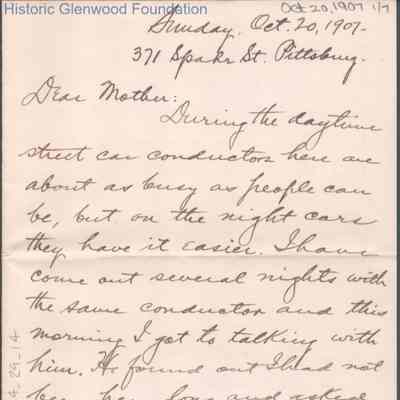 Historic Glenwood Foundation
Oct 20, 1907 1/7
Sunday, Oct. 20, 1907.
371 Spahr St. Pittsburg.
Dear Mother:
During the daytime
street car conductors here are
about as busy as people can
be, but on the night cars
they have it easier. I have
come out several nights with
the same conductor and this
morning I got to talking with
him. He found out I had not
been here long and asked